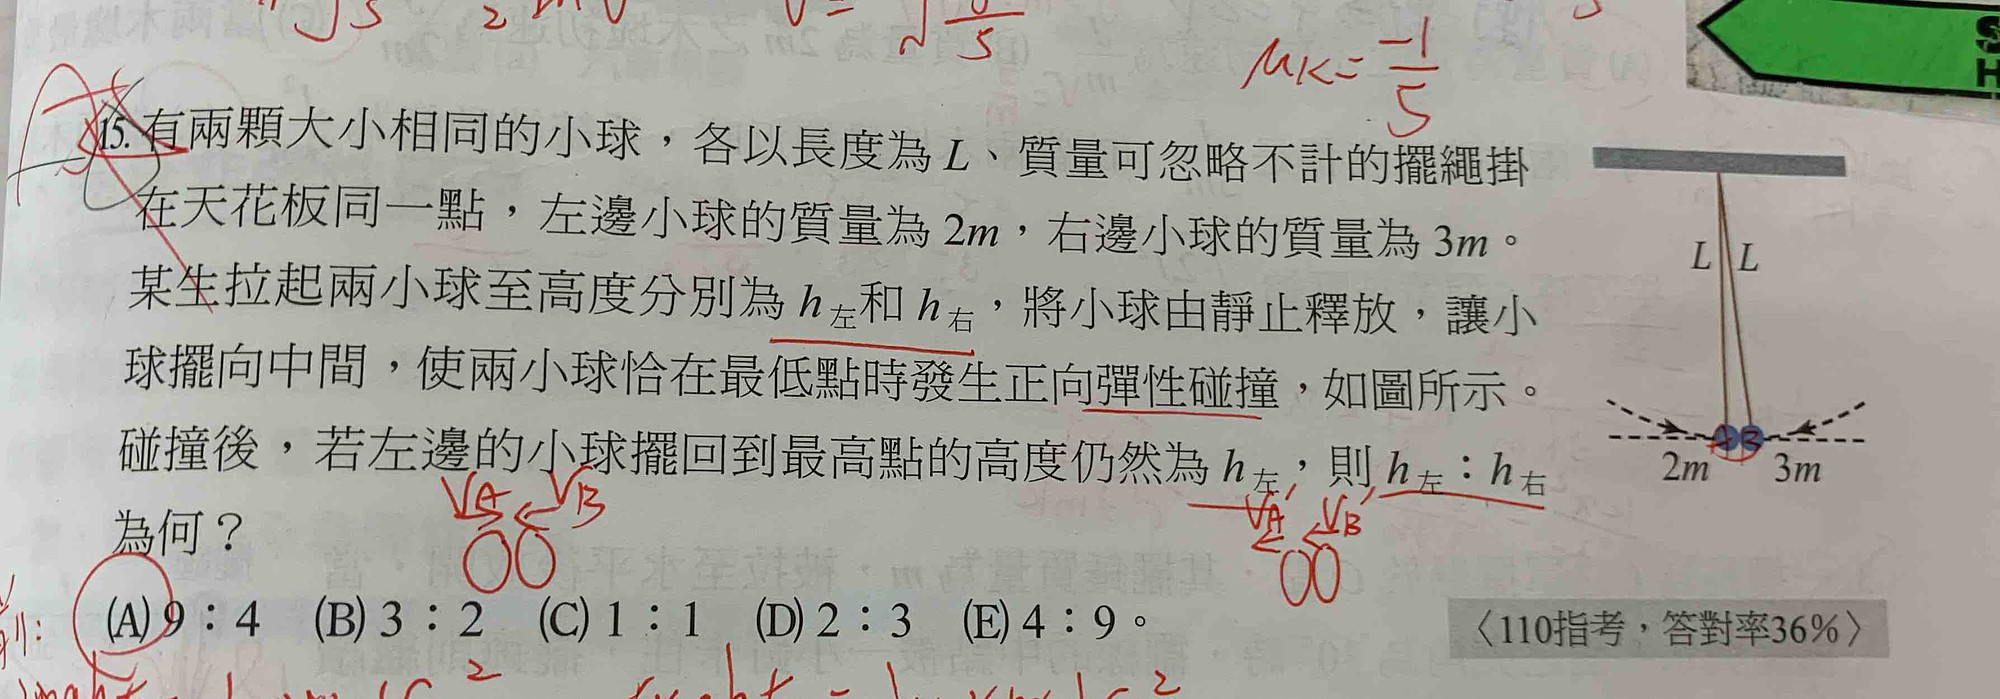 μK= -1/5
S
H
15.有兩顆大小相同的小球，各以長度為 L、質量可忽略不計的擺繩掛
在天花板同一點，左邊小球的質量為 2m，右邊小球的質量為 3m。
某生拉起兩小球至高度分別為 h左和 h右，將小球由靜止釋放，讓小
球擺向中間，使兩小球恰在最低點時發生正向彈性碰撞，如圖所示。
碰撞後，若左邊的小球擺回到最高點的高度仍然為 h左，則 h左：h右
為何？
VA VB
VA' VB'
(A) 9：4 (B) 3：2 (C) 1：1 (D) 2：3 (E) 4：9。
〈110指考，答對率36%〉
L L
2m 3m